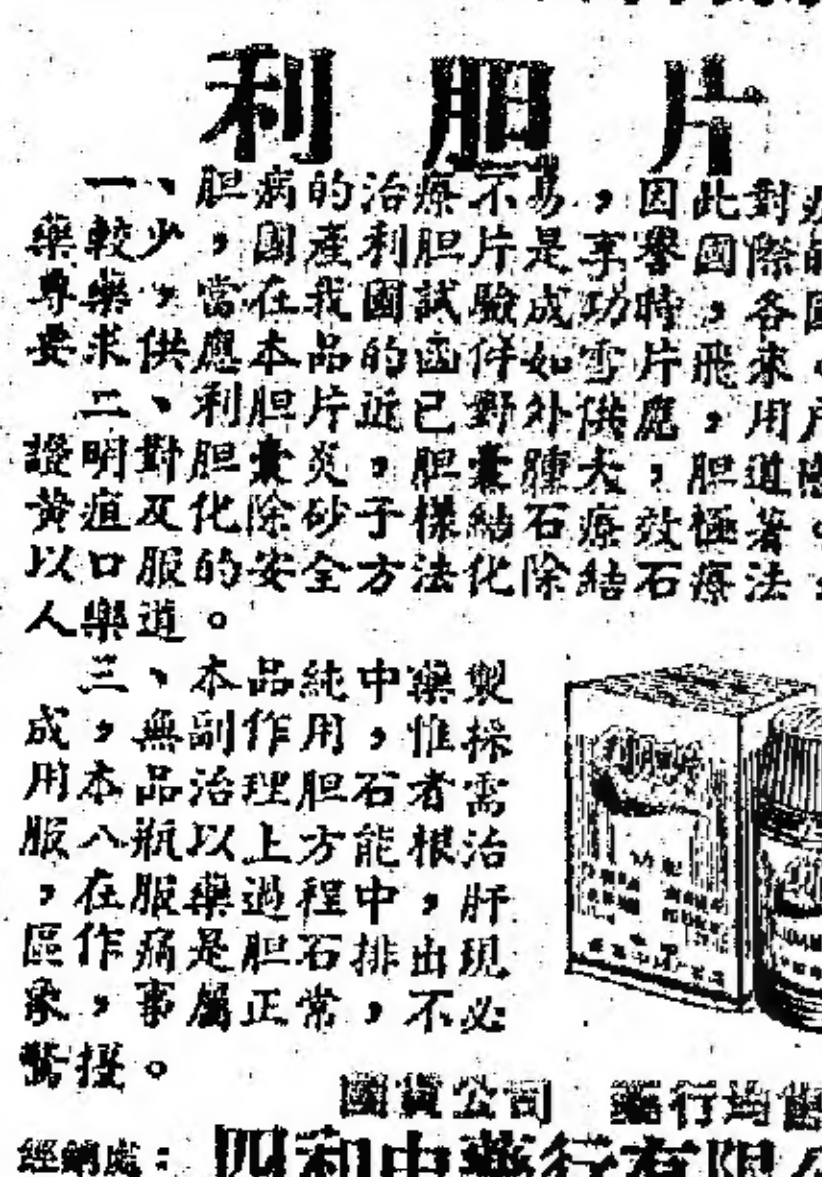 利胆片
一、胆病的治療不易,因此對
藥較少,國產利胆片是享譽國際
專藥,當在我國試驗成功時,各
要求供應本品的函件如雪片飛來。
二、利胆片近已對外供應,用
證明對胆囊炎,胆囊腫大,胆道
黃疸及化除砂子樣結石療效極著。
以口服的安全方法化除結石療法,
人樂道。
三、本品純中藥製
成,無副作用,惟採
用本品治理胆石者需
服八瓶以上方能根治
,在服藥過程中,肝
區作痛是胆石排出現
象,事屬正常,不必
驚擾。
國貨公司 藥行均售
經銷處:四和中藥行有限公